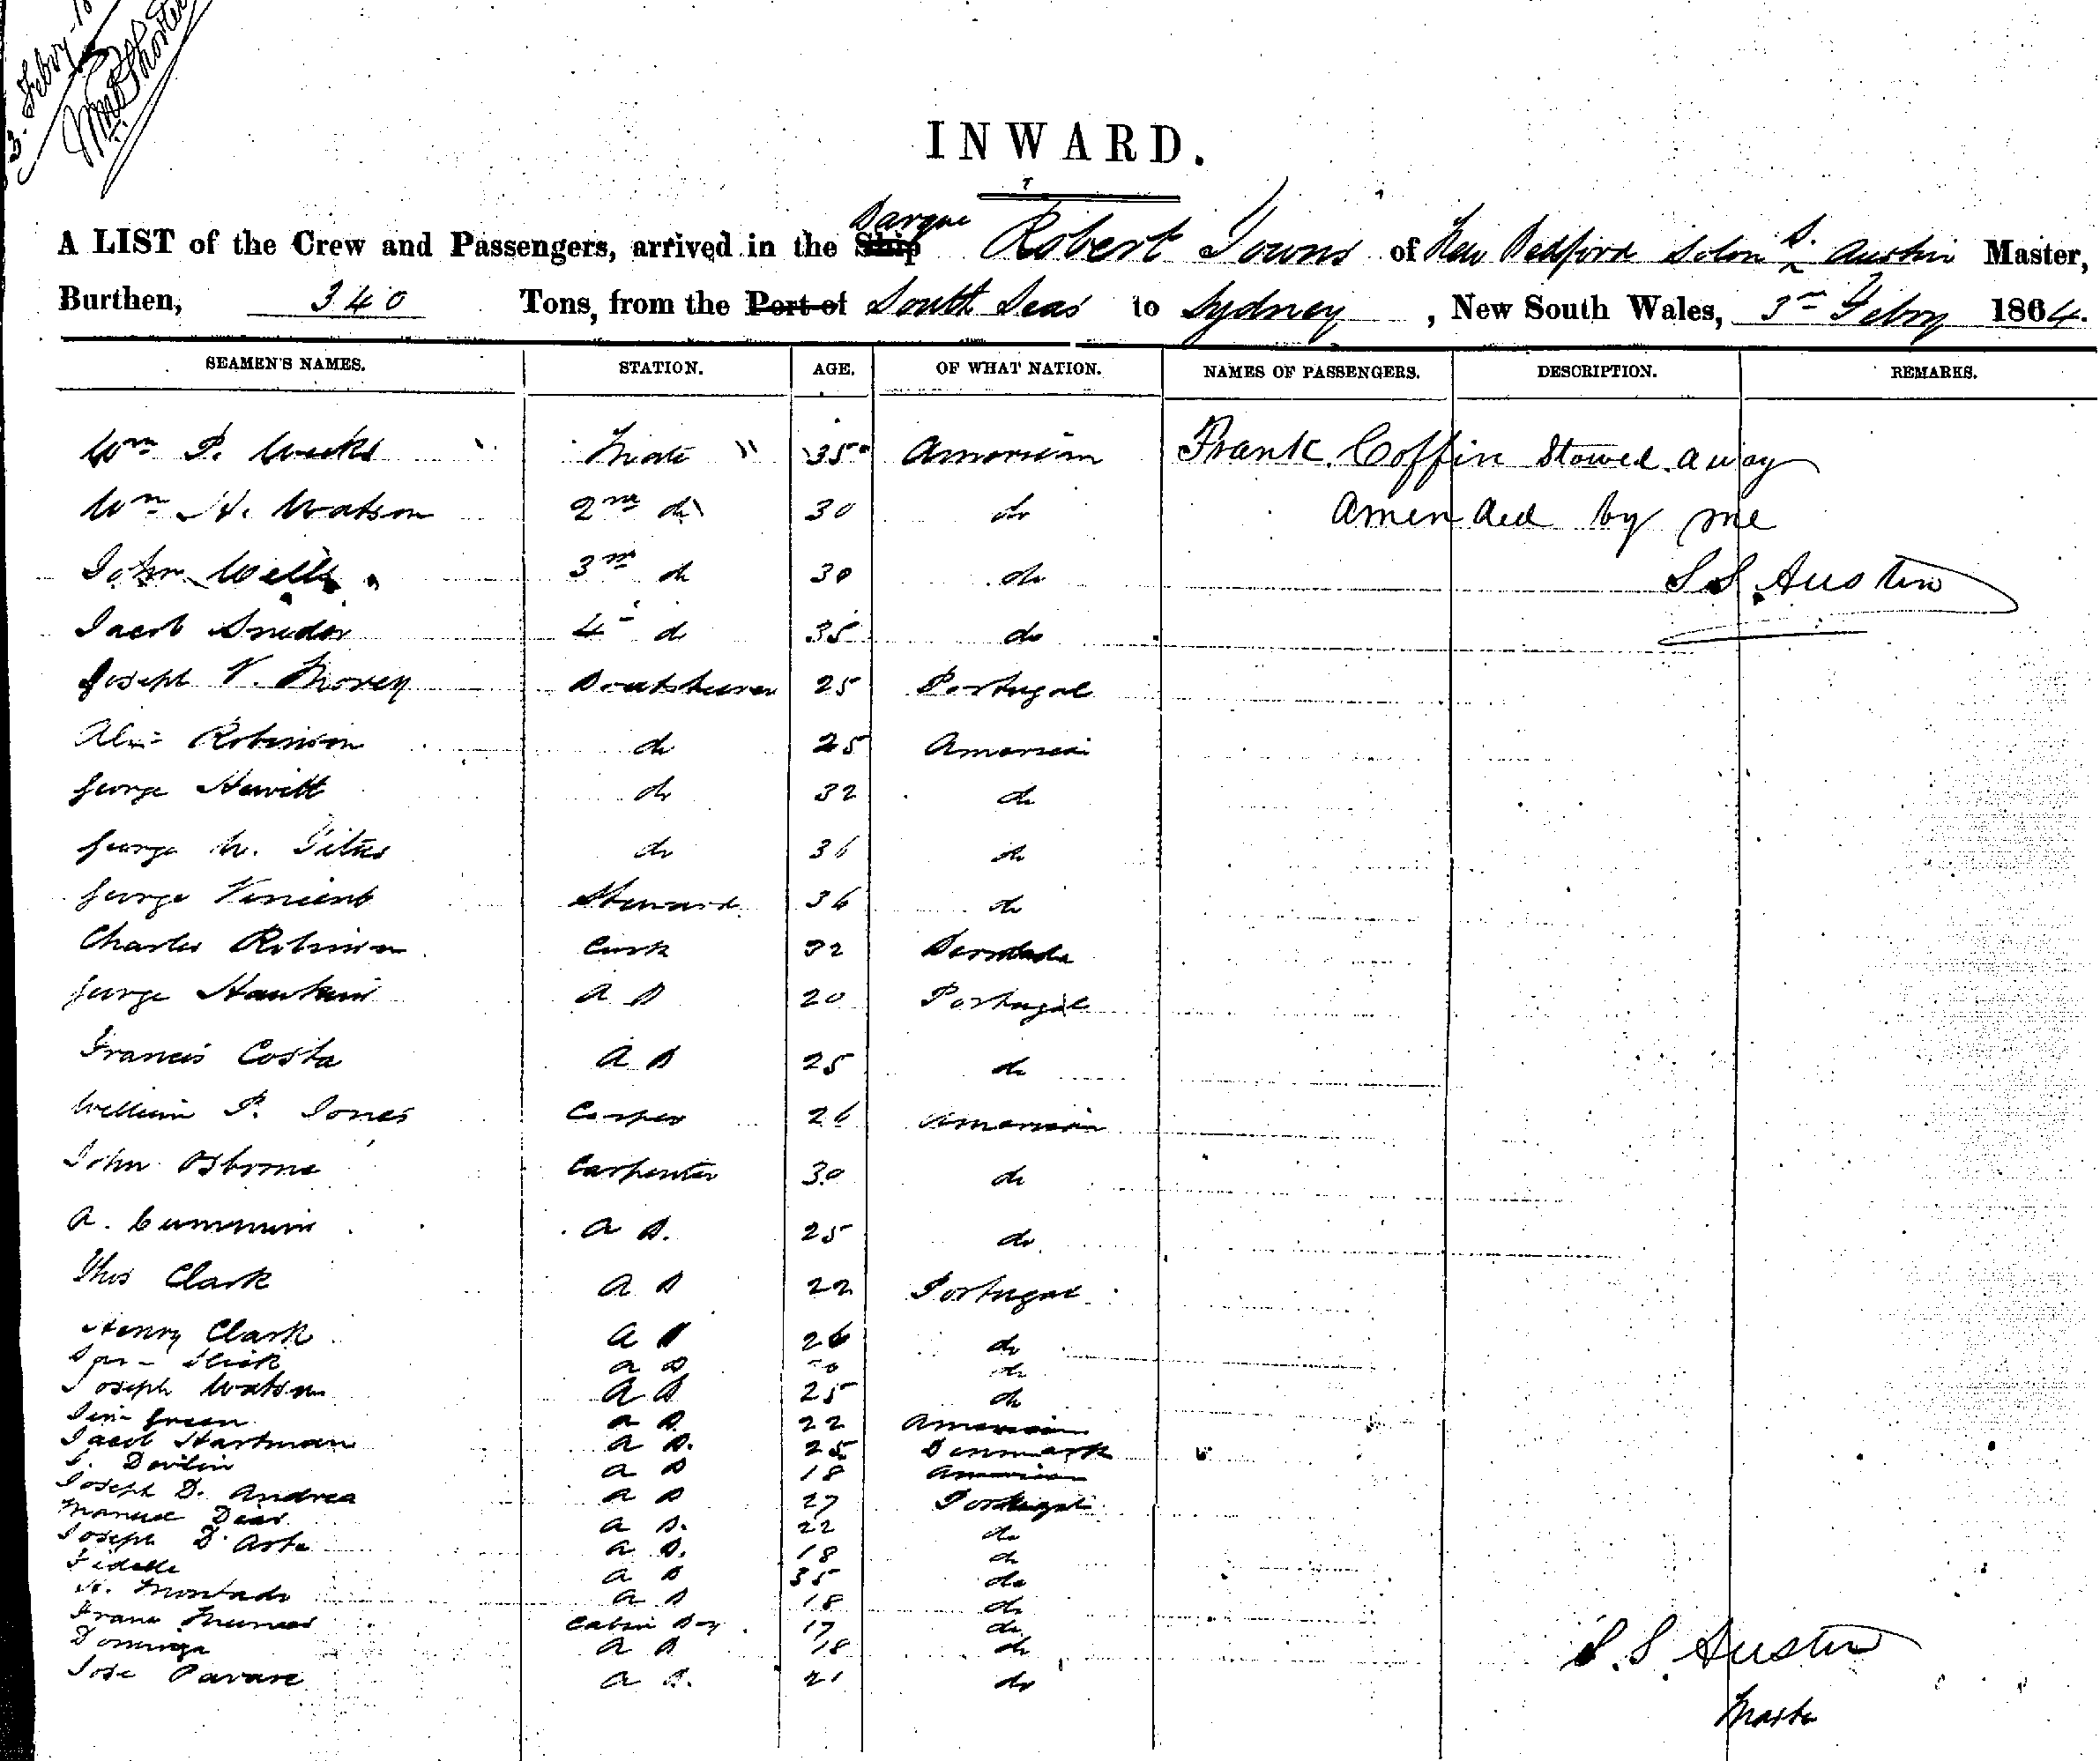 3. Febry
INWARD.
A LIST of the Crew and Passengers, arrived in the Ship Barque Robert Towns of New Bedford Solon S. Austin Master,
Burthen, 340 Tons, from the Port of South Seas to Sydney, New South Wales, 3rd Febry 1864.
SEAMEN'S NAMES. STATION. AGE. OF WHAT NATION. NAMES OF PASSENGERS. DESCRIPTION. REMARKS.
Wm P. Weeks Mate 35 American Frank Coffin Stowed away
Wm H. Watson 2nd do 30 do amended by me
John Wells 3rd do 30 do S S Austin
Jacob Snider 4 do 35 do
Joseph V. Morey Boatsteerer 25 Portugal
Alex Robinson do 25 American
George Hewitt do 32 do
George W. Titus do 36 do
George Vincent Steward 36 do
Charles Robinson Cook 32
George Hawkins A B 20 Portugal
Francis Costa A B 25 do
William P. Jones Cooper 26 American
John Osborne Carpenter 30 do
A. Cummins A B. 25 do
Thos Clark A B 22 Portugal
Henry Clark A B 26 do
Slick A B do
Joseph Watson A B 25 do
Green A B 22 American
Jacob Hartman A B. 25 Denmark
Devlin A B 18 American
Joseph D. Andrea A B 27 Portugal
Manuel Dias A B. 22 do
Joseph D. A B. 18 do
Fidelle A B 35 do
Montado A B 18 do
Frank Cabin Boy 17 do
Dominga A B 18 do
Jose Pavare A B. 21 do
S. S. Austin
Master